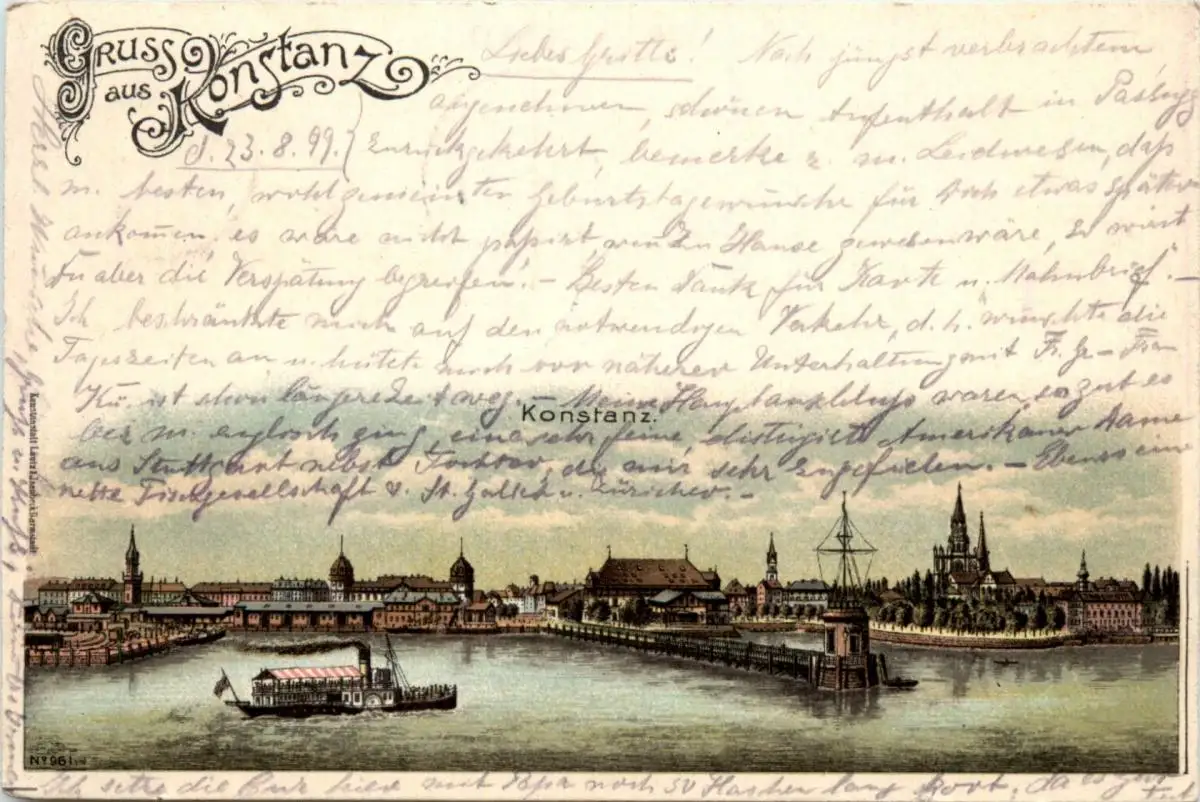 Gruss
aus Konstanz
Liebes Gritle! Nach jüngst verbrachtem
angenehmen, schönen Aufenthalt in Passugg
23.8.99. zurückgekehrt, bemerke z. m. Leidwesen, daß
m. besten, wohlgemeinten Geburtstagswünsche für Dich etwas später
ankommen, es wäre nicht passirt wenn zu Hause gewesen wäre, Du wirst
Du aber die Verspätung begreifen! – Besten Dank für Karte u. Mahnbrief. –
Ich beschränkte mich auf den notwendigen Verkehr, d. h. wünschte die
Tageszeiten an u. hütete mich vor näherer Unterhaltung mit Fr. Ge – Frau
Kü. ist schon längere Zeit weg. – Meine waren zuerst es
eine sehr feine Amerikaner Dame
aus Stuttgart nebst Tochter, die mir sehr gefielen. – Ebenso eine
nette Tischgesellschaft v. St. Galler u. Züricher. –
Konstanz.
No 961
Ich setze die Kur hier mit Papa noch 50 Flaschen lang fort, da es
Herzl. Wünsche, Grüße u. Küsse,